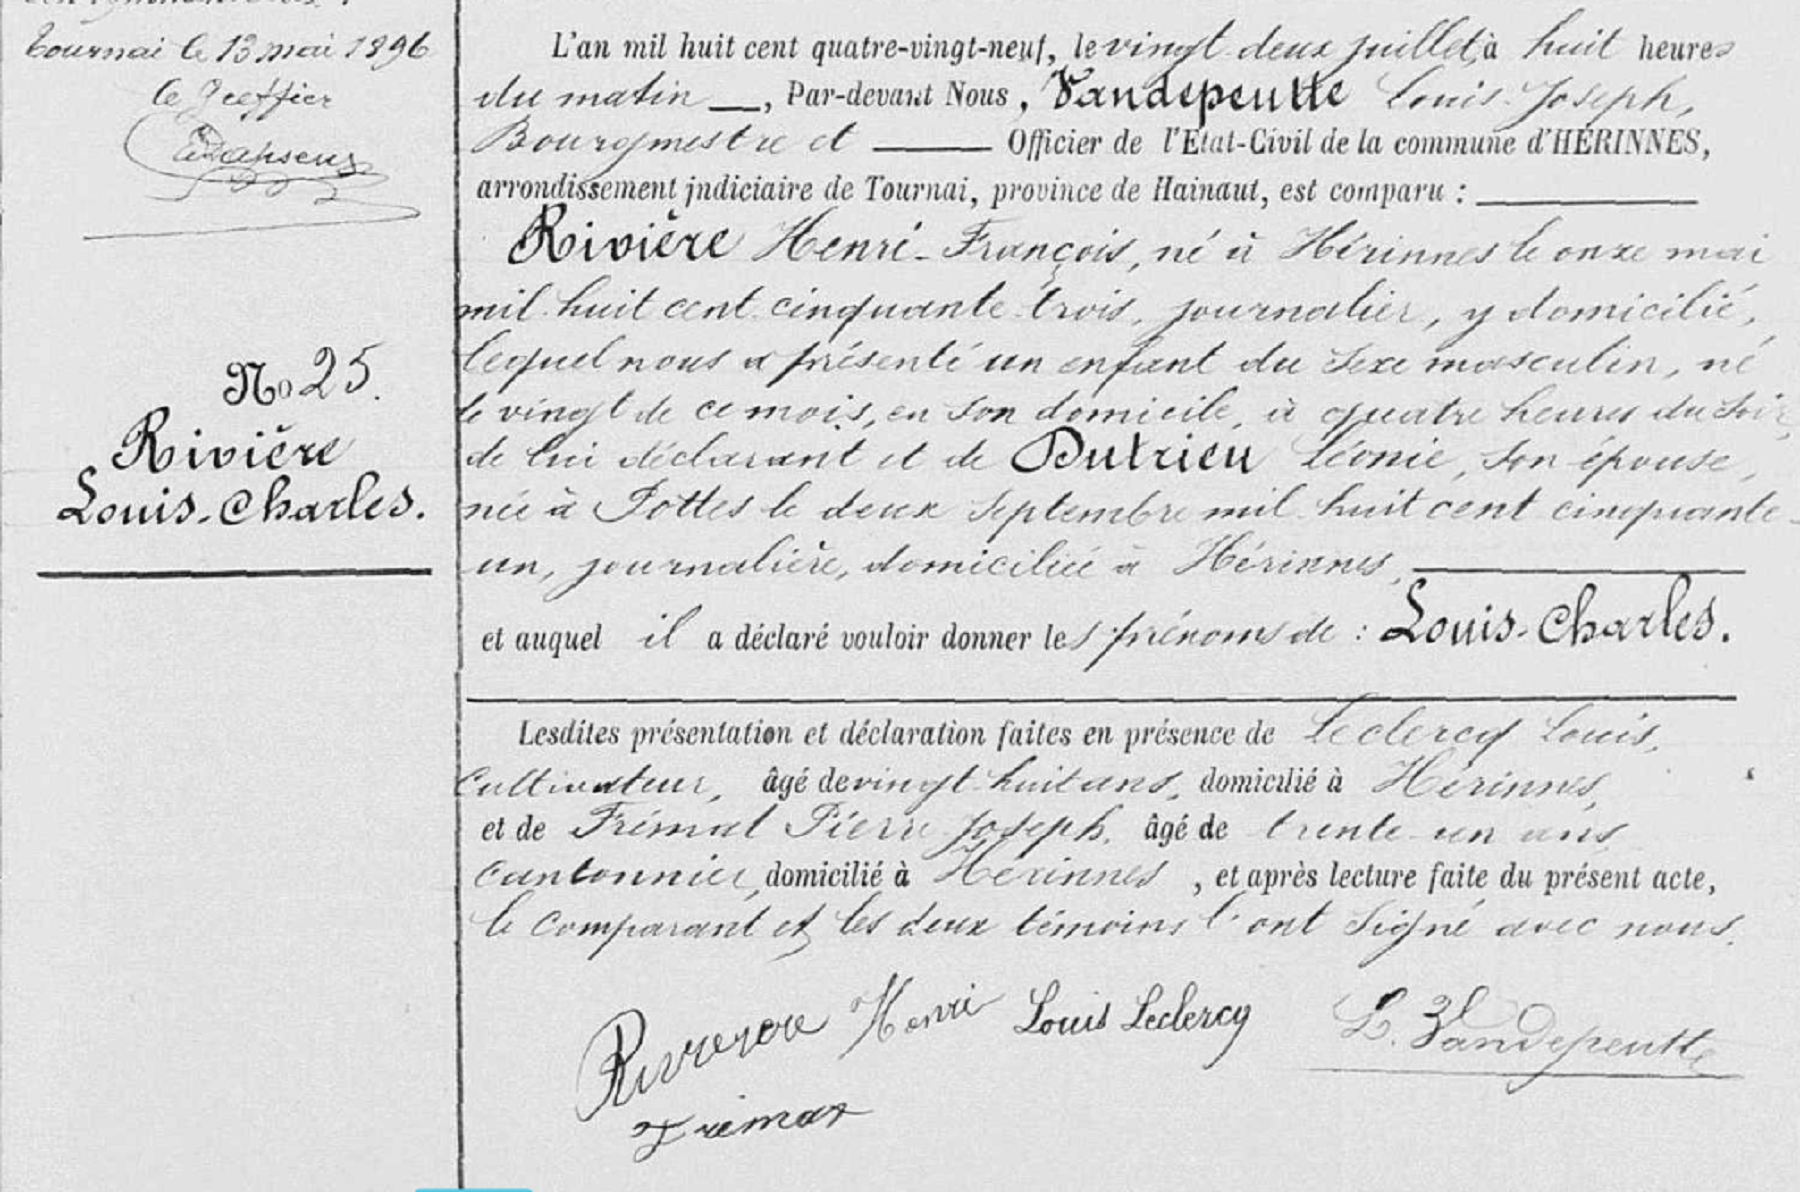 Tournai le 13 mai 1896
le Greffier
No 25.
Rivière
Louis-Charles.
L'an mil huit cent quatre-vingt-neuf, le vingt-deux juillet, à huit heures
du matin —, Par-devant Nous, Vandepeutte Louis-Joseph,
Bourgmestre et — Officier de l'Etat-Civil de la commune d'HÉRINNES,
arrondissement judiciaire de Tournai, province de Hainaut, est comparu :
Rivière Henri-François, né à Hérinnes le onze mai
mil-huit cent cinquante-trois, journalier, y domicilié,
lequel nous a présenté un enfant du sexe masculin, né
le vingt de ce mois, en son domicile, à quatre heures du soir,
de lui déclarant et de Dutrieu Léonie, son épouse,
née à Pottes le deux septembre mil-huit cent cinquante-
un, journalière, domiciliée à Hérinnes,
et auquel il a déclaré vouloir donner les prénoms de : Louis-Charles.
Lesdites présentation et déclaration faites en présence de Leclercq Louis,
Cultivateur, âgé de vingt-huit ans, domicilié à Hérinnes,
et de Frémat Pierre-Joseph, âgé de trente-un ans
Cantonnier, domicilié à Hérinnes, et après lecture faite du présent acte,
le Comparant et les deux témoins l'ont signé avec nous.
Henri Louis Leclercq L. Vandepeutte